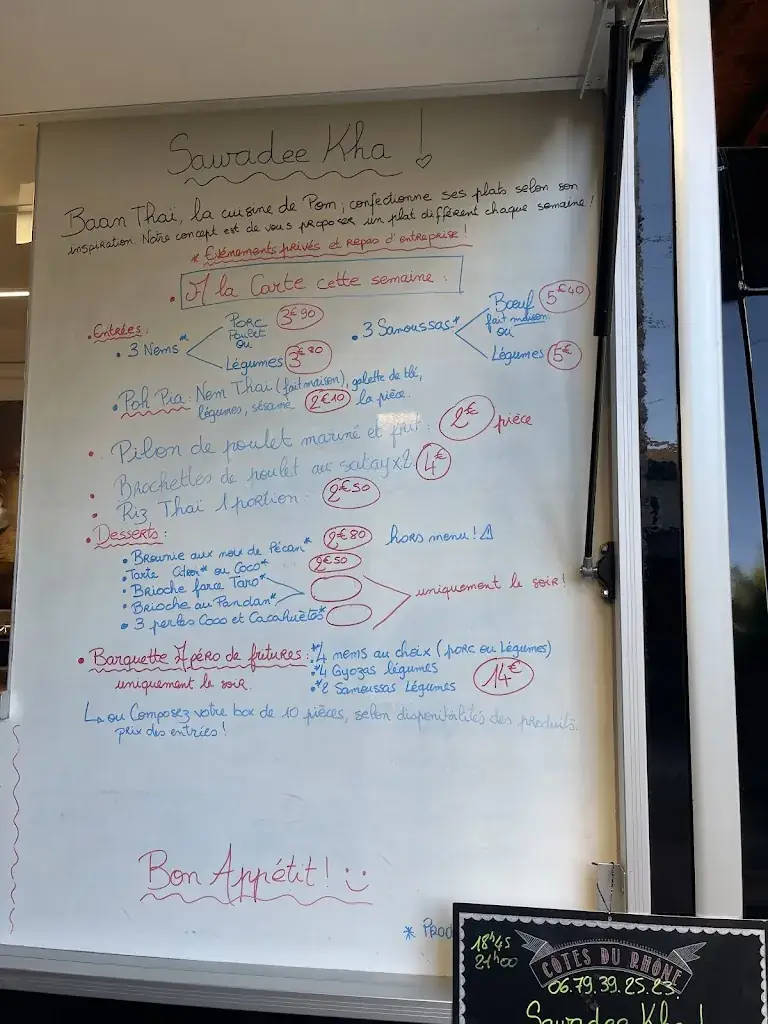 Sawadee Kha !
Baan Thaï, la cuisine de Pom, confectionne ses plats selon son
inspiration. Notre concept est de vous proposer un plat différent chaque semaine !
* Evénements privés et repas d'entreprise !
A la Carte cette semaine :
Entrées :
3 Nems*
Porc 3€90
Poulet
ou
Légumes
3 Samoussas*
Bœuf 5€40
fait maison
ou
Légumes 5€
Poh Pia : Nem Thaï (fait maison), galette de blé,
légumes, sésame 2€10 la pièce.
Pilon de poulet mariné et frit : 2€ pièce
Brochettes de poulet au satay x2 4€
Riz Thaï 1 portion : 2€50
Desserts :
Brownie aux noix de Pécan* 2€80 hors menu !
Tarte Citron* ou Coco* 2€50
Brioche farce Taro*
Brioche au Pandan*
3 perles Coco et Cacahuètes*
uniquement le soir !
Barquette Apéro de fritures :
uniquement le soir.
*4 nems au choix (porc ou Légumes)
*4 Gyozas légumes
*2 Samoussas Légumes
14€
ou Composez votre box de 10 pièces, selon disponibilités des produits.
prix des entrées !
Bon Appétit !
* Prod
18h45
21h00
CÔTES DU RHÔNE
06.79.39.25.23.
Sawadee Kha !